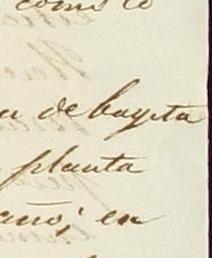 como lo
a de bayeta
planta
año; en